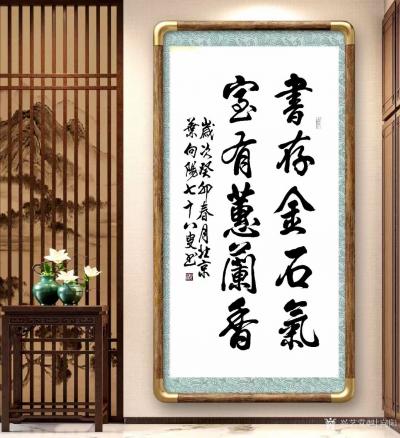 書存金石氣
室有蕙蘭香
歲次癸卯春月於北京
葉向陽七十八叟書